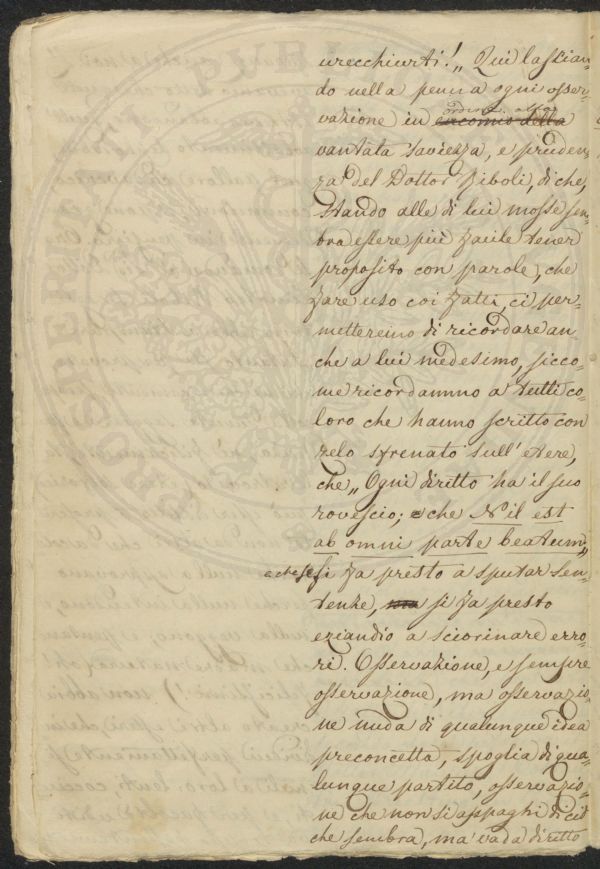 urecchiurti!„ Qui lascian-
do nella penna ogni osser-
vazione in ordine alla
encomio della
vantata saviezza, e pruden-
za del Dottor Riboli, di che,
stando alle di lui mosse sem-
bra essere più facile tener
proposito con parole, che
fare uso coi fatti, ci per-
metteremo di ricordare an-
che a lui medesimo, sicco-
me ricordammo a tutti co-
loro che hanno scritto con
zelo sfrenato sull' etere,
che „ Ogni diritto ha il suo
rovescio; e che Nil est
ab omni parte beatum„
e che se si fa presto a sputar sen-
tenze, ma si fa presto
eziandio a sciorinare erro-
ri. Osservazione, e sempre
osservazione, ma osservazio-
ne nuda di qualunque idea
preconcetta, spoglia di qua-
lunque partito, osservazio-
ne che non si appaghi di ciò
che sembra, ma vada diritto